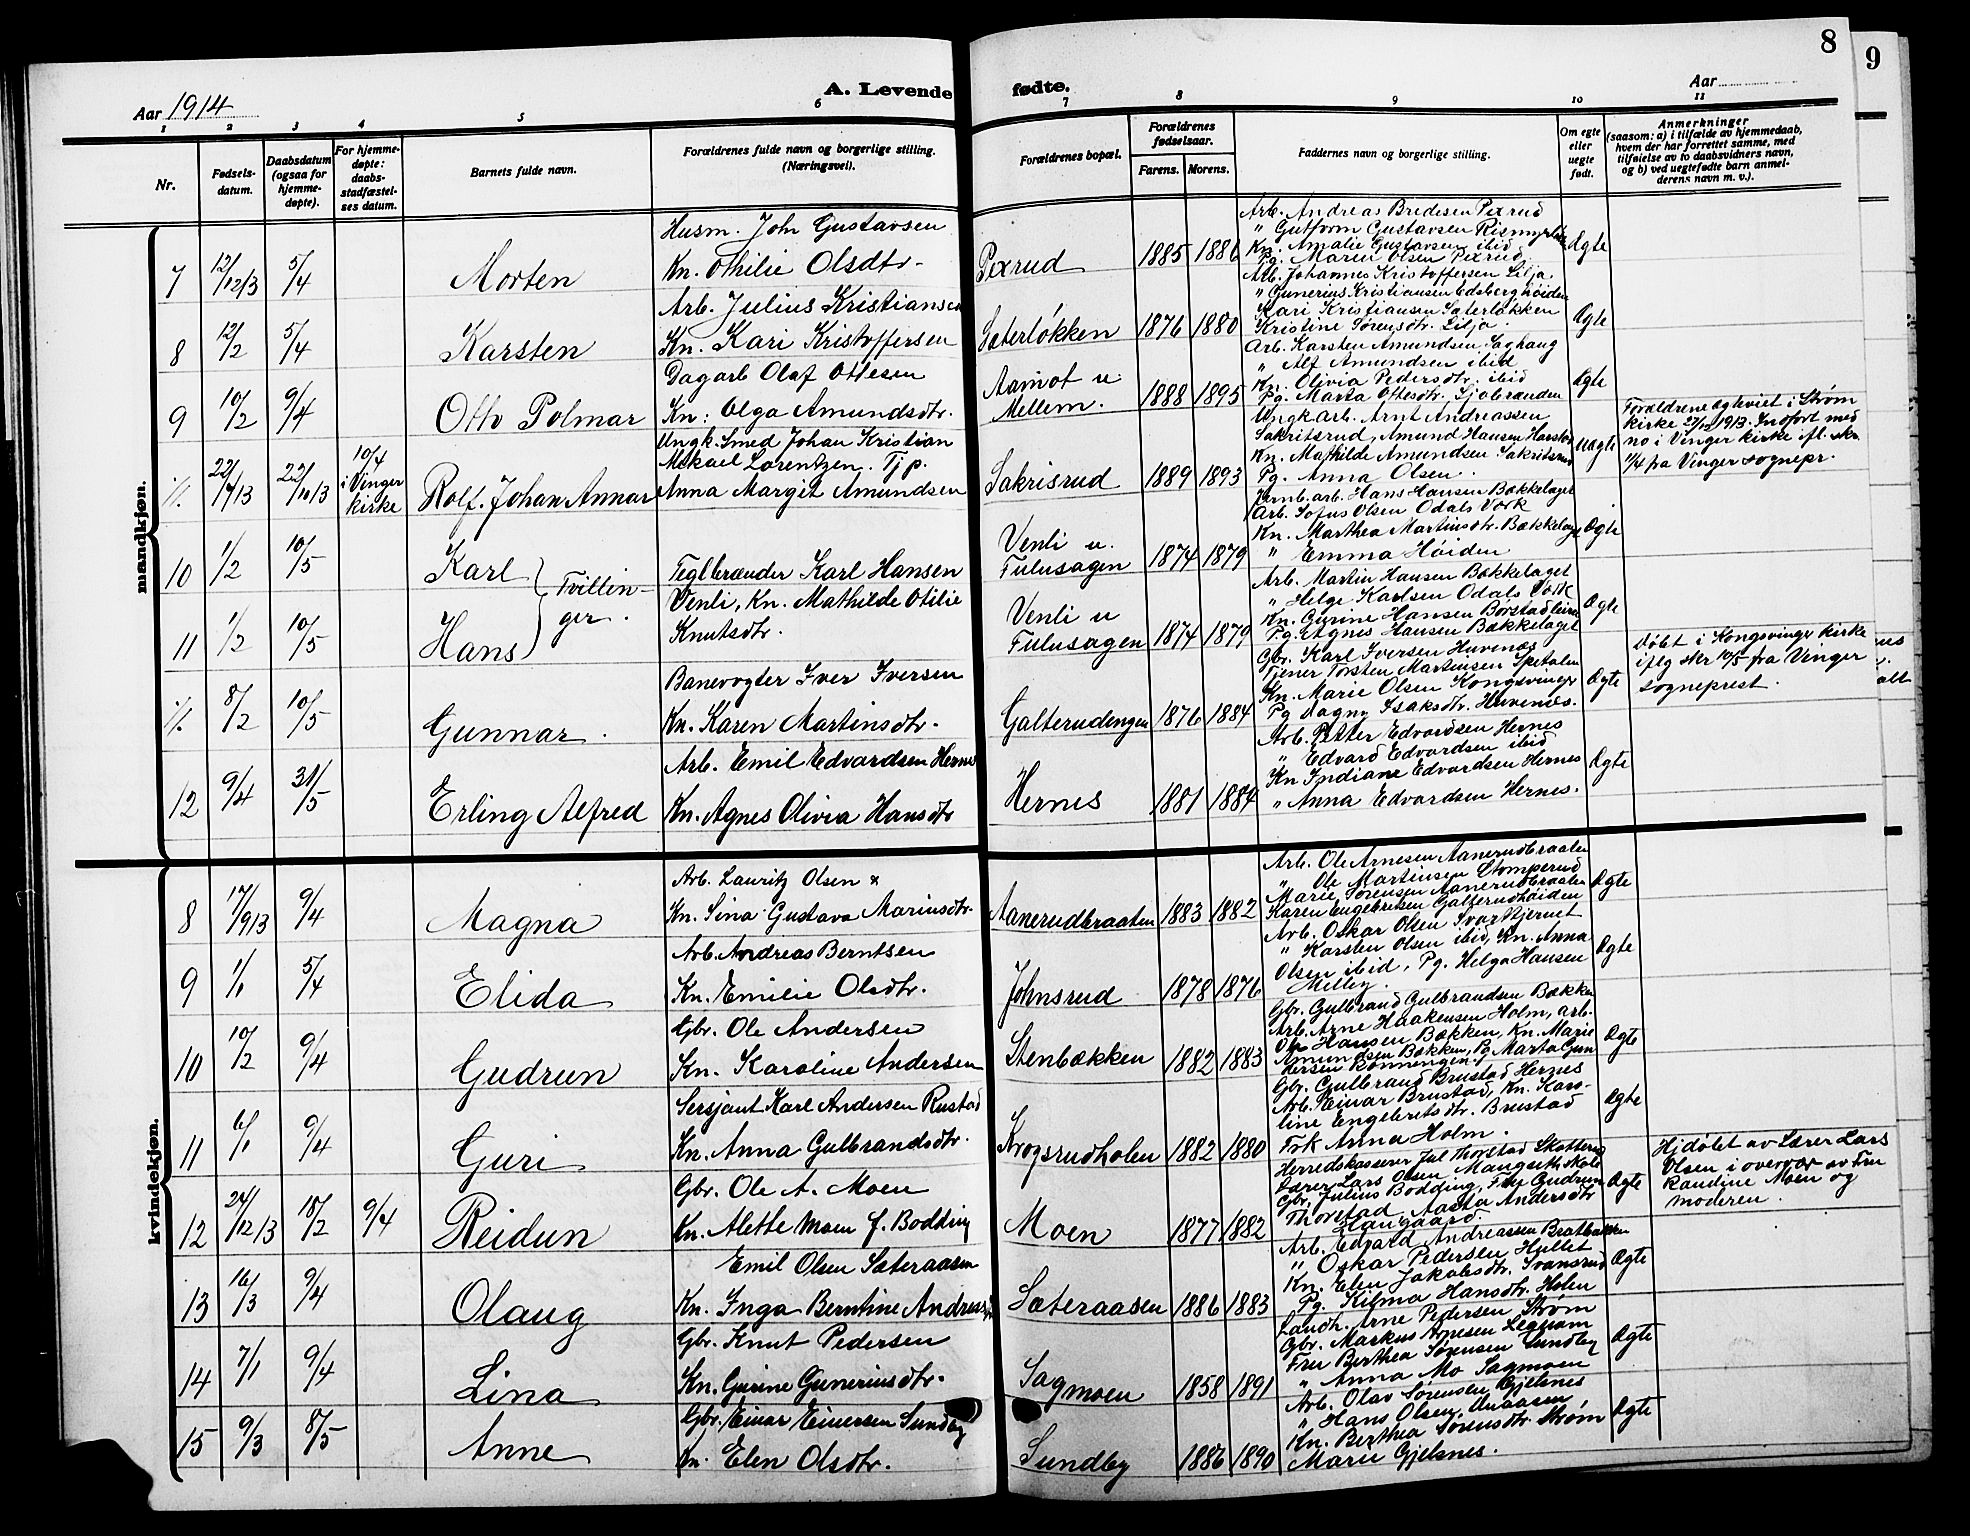 8
9
Aar 1914
A. Levende fødte.
Aar
1 2 3 4 5 6 7 8 9 10 11
Nr.
Fødsels-
datum.
Daabsdatum
(ogsaa for
hjemme-
døpte).
For hjemme-
døpte:
daabs-
stadfæstel-
ses datum.
Barnets fulde navn.
Forældrenes fulde navn og borgerlige stilling.
(Næringsvei).
Forældrenes bopæl.
Forældrenes
fødselsaar.
Farens. Morens.
Faddernes navn og borgerlige stilling.
Om egte
eller
uegte
født.
Anmerkninger
(saasom: a) i tilfælde av hjemmedaab,
hvem der har forrettet samme, med
tilføielse av to daabsvidners navn,
og b) ved uegtefødte barn anmel-
derens navn m. v.).
mandkjøn.
7 12/12/13 5/4 Morten
Husm. John Gustavsen
Kn. Othilie Olsdtr.
Pexrud 1885 1886
Arb. Andreas Bredesen Pexrud
" Gutform Gustavsen Rismyrlien
Kn. Amalie Gustavsen ibid
Pg. Maren Olsen Pexrud
Ægte
8 12/2 5/4 Karsten
Arb. Julius Kristiansen
Kn. Kari Kristoffersen
Sæterløkken 1876 1880
Arb. Johannes Kristoffersen Lilja
" Gunerius Kristiansen Edsberghøiden
Kari Kristiansen Sæterløkken
Kristine Sørensdtr. Lilja.
Ægte
9 10/2 9/4 Otto Polmar
Dagarb Olaf Ottesen
Kn: Olga Amundsdtr.
Aamot u
Mellem. 1888 1895
Arb. Karsten Amundsen Saghaug
" Alf Amundsen ibid
Kn. Olivia Pedersdtr. ibid
Pg. Marta Ottesdtr. Sjøbrænden
Ægte
22/4/13 22/10/13 10/4
i Vinger
kirke
Rolf Johan Annar
Ungk. Smed Johan Kristian
Mikael Lorentzen. Tjp.
Anna Margit Amundsen
Sakrisrud 1889 1893
Ungkarb. Arnt Andreassen
Sakritsrud, Amund Hansen
Kn. Mathilde Amundsen Sakritsrud
Pg. Anna Olsen.
Uægte
Forældrene ægteviet i Strøm
kirke 27/12 1913. Indført med
no i Vinger kirke ifl. skr.
11/4 fra Vinger sognepr.
10 1/2 10/5 Karl
Tvillin-
ger.
Teglbrænder Karl Hansen
Venli, Kn. Mathilde Otilie
Knutsdtr.
Venli u.
Fulusagen 1874 1879
Jernb. arb. Hans Hansen Bækkelaget
Arb. Sofus Olsen Odals Værk
Kn. Marthea Martinsdtr. Bækkelaget
" Emma Høiden
Ægte
11 1/2 10/5 Hans
Venli u
Fulusagen 1874 1879
Arb. Martin Hansen Bækkelaget
" Helge Karlsen Odals Værk
Kn. Gurine Hansen
Pg. Agnes Hansen Bækkelaget
Ægte
8/2 10/5 Gunnar.
Banevogter Iver Iversen
Kn. Karen Martinsdtr.
Galterudengen 1876 1884
Gbr. Karl Iversen Huvenæs
Tjener Torsten Martinsen Spetalen
Kn. Marie Olsen Kongsvinger
Pg Dagny Isaksdtr. Huvenæs.
Ægte
Døbt i Kongsvinger kirke
iflg skr 10/5 fra Vinger
sogneprest.
12 9/4 31/5 Erling Alfred
Arb. Emil Edvardsen Hernes
Kn. Agnes Olivia Hansdtr
Hernes 1881 1884
Arb. Petter Edvardsen Hernes
" Edvard Edvardsen ibid
Kn Indiane Edvardsen Hernes
" Anna Edvardsen Hernes.
Ægte
kvindekjøn.
8 17/9/13 9/4 Magna
Arb. Lauritz Olsen x
Kn. Sina Gustava Mariusdtr.
Aanerudbraaten 1883 1882
Arb. Ole Arnesen Aanerudbraaten
" Ole Martinsen Stomperud
Marie Sørensen Aanerudbraaten
Karen Engebretsen Galterudhøiden
Ægte
9 1/1 5/4 Elida
Arb. Andreas Berntsen
Kn. Emilie Olsdtr.
Johnsrud 1878 1876
Arb. Oskar Olsen Svarttjernet
" Karsten Olsen ibid, Kn. Anna
Olsen ibid, Pg. Helga Hansen
Milley.
Ægte
10 10/2 9/4 Gudrun
Gbr. Ole Andersen
Kn. Karoline Andersen
Stenbækken 1882 1883
Gbr. Gulbrand Gulbrandsen Bækken
Arb. Arne Haakensen Holm, arb.
Ole Hansen Bækken, Kn. Marie
Amundsen Bækken, Pg Marta Gun
dersen Rønningen.
Ægte
11 6/1 9/4 Guri
Sersjant Karl Andersen Rustad
Kn. Anna Gulbrandsdtr.
Krogsrudholen 1882 1880
Gbr. Gulbrand Brustad Hernes
Arb. Einar Brustad, Kn. Karo-
line Engebretsdtr. Brustad
Frk Anna Holm.
Ægte
12 24/12/13 18/2 9/4 Reidun
Gbr. Ole A. Moen
Kn. Alethe Moen f. Bodding
Moen 1877 1882
Herredskasserer Jul Thorstad Skotterud
Lærer Lars Olsen Mangenskole
Gbr. Julius Bodding, Frk Gudrun
Thorstad, Aasta Andersdtr
Haugaard.
Ægte
Hjdøbt av Lærer Lars
Olsen i overvær av Fru
Randine Moen og
moderen.
13 16/3 9/4 Olaug
Emil Olsen Sæteraasen
Kn. Inga Berntine Andreasdtr
Sæteraasen 1886 1883
Arb. Edvard Andreassen Bratbakken
" Oskar Pedersen Hullet
Kn. Elen Jakobsdtr. Svansrud
Pg. Kilma Hansdtr. Holen
Ægte
14 7/1 9/4 Lina
Gbr. Knut Pedersen
Kn. Gurine Guneriusdtr.
Sagmoen 1858 1891
Landh. Arne Pedersen Strøm
Gbr. Markus Arnesen Legnam
Fru Berthea Sørensen Sundby
" Anna Mo Sagmoen
Ægte
15 9/3 8/5 Anne
Gbr. Einar Einersen Sundby
Kn. Elen Olsdtr.
Sundby 1886 1890
Arb. Olav Sørensen Gjelsnes
" Hans Olsen Unaasen
Kn. Berthea Sørensdtr Strøm
Marie Gjelsnes.
Ægte